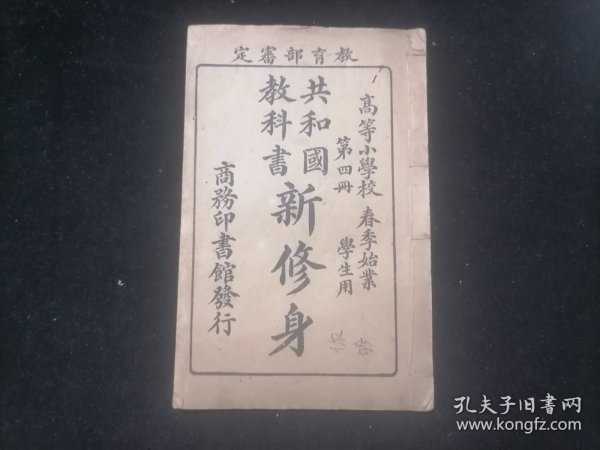 教育部審定
高等小學校 春季始業
第四冊 學生用
共和國
教科書
新修身
商務印書館發行
孔夫子旧书网
www.kongfz.com